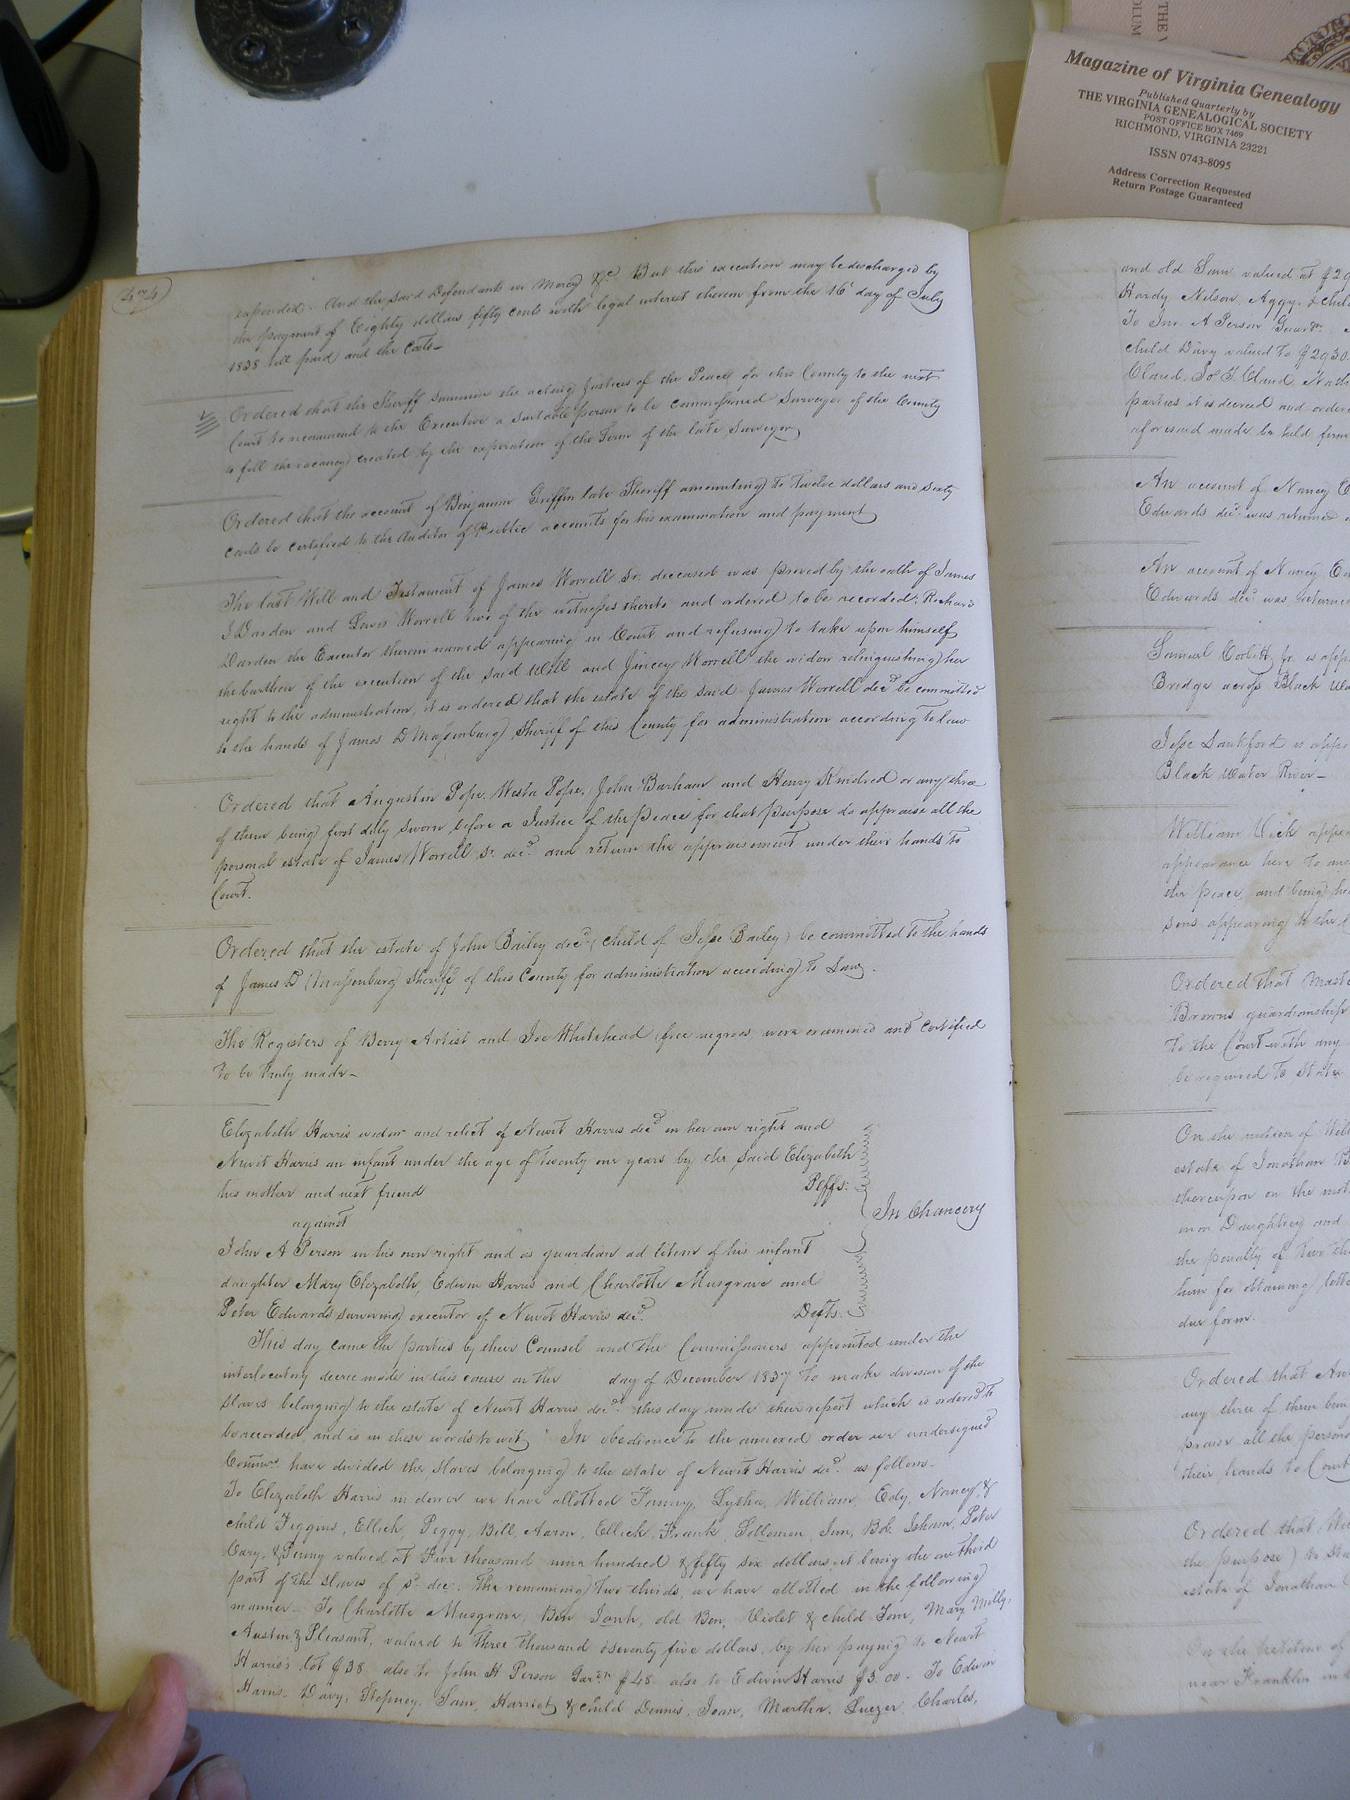 Magazine of Virginia Genealogy
Published Quarterly by
THE VIRGINIA GENEALOGICAL SOCIETY
POST OFFICE BOX 7469
RICHMOND, VIRGINIA 23221
ISSN 0743-8095
Address Correction Requested
Return Postage Guaranteed
THE V
OLUM
expended. And the said Defendants in Mercy &c. But this execution may be discharged by
the payment of Eighty dollars fifty cents with legal interest thereon from the 16 day of July
1838 till paid and the Costs—
Ordered that the Sheriff summon the acting Justices of the Peace for this County to the next
Court to recommend to the Executive a suitable person to be commissioned Surveyor of the County
to fill the vacancy created by the expiration of the Term of the late Surveyor
Ordered that the account of Benjamin Griffin late Sheriff amounting to Twelve dollars and sixty
cents be certified to the Auditor of Public accounts for his examination and payment
The last Will and Testament of James Worrell Sr. deceased was proved by the oath of James
J Darden and Lewis Worrell two of the witnesses thereto and ordered to be recorded; Richard
Darden the Executor therein named appearing in Court and refusing to take upon himself
the burthen of the execution of the said Will and Jincey Worrell the widow relinquishing her
right to the administration, it is ordered that the estate of the said James Worrell decd be committed
to the hands of James D Massenburg Sheriff of this County for administration according to law
Ordered that Augustin Pope, Weston Pope, John Barham and Henry Kindred or any three
of them being first duly sworn before a Justice of the Peace for that purpose do appraise all the
personal estate of James Worrell Sr. decd. and return the appraisement under their hands to
Court.
Ordered that the estate of John Bailey decd (child of Jesse Bailey) be committed to the hands
of James D Massenburg Sheriff of this County for administration according to Law.
The Registers of Berry Artist and Joe Whitehead free negroes were examined and certified
to be truly made—
Elizabeth Harris widow and relict of Newit Harris decd in her own right and
Newit Harris an infant under the age of twenty one years by the said Elizabeth
his mother and next friend Plffs.
against In Chancery
John A Person in his own right and as guardian ad litem of his infant
daughter Mary Elizabeth, Edwin Harris and Charlotte Musgrave and
Peter Edwards surviving executor of Newit Harris decd. Defts.
This day came the parties by their Counsel and the Commissioners appointed under the
interlocutory decree made in this cause on the day of December 1837 to make division of the
slaves belonging to the estate of Newit Harris decd. this day made their report which is ordered to
be recorded and is in these words to wit, "In obedience to the annexed order we undersigned
Commrs have divided the slaves belonging to the estate of Newit Harris decd. as follows—
To Elizabeth Harris in dower we have allotted Fanny, Lysha, William, Edy, Nancy, &
child Figgins, Ellick, Peggy, Bill, Aaron, Ellick, Frank Solloman, Jim, Bob, Peter
Cary, & Penny valued at Five thousand nine hundred & fifty six dollars it being the one third
part of the slaves of sd. dec. The remaining two thirds we have allotted in the following
manner— To Charlotte Musgrave, Ben old Ben, Violet & child Tom, Mary Milly,
Austin & Pleasant, valued to three thousand & seventy five dollars, by her paying to Newit
Harris's lot $38 also to John A Person Gardn $48 also to Edwin Harris $3.00 - To Edwin
Harris, Davy, Stepney, Sam, Harriet & child Dennis, Joan, Martha, Charles,
and old Sam valued at $29
Hardy Nelson, Aggy & chil
To Jno. A Person Guardn.
child Davy valued to $2930
parties it is decreed and ordere
aforesaid made be held firm
An account of Nancy E
Edwards decd. was returned
An account of Nancy Ed
Edwards decd was returned
Samuel Corbitt Jr. is app
Bridge across Black Wa
Jesse Lankford is appo
Black Water River—
William Vick appea
appearance here to an
the peace, and being he
sons appearing to the
Ordered that Mast
Browns guardianship
to the Court with any
be required to state
On the motion of Wil
estate of Jonathan
thereupon on the mot
mon Daughtrey and
the penalty of five th
him for obtaining lette
due form.
Ordered that An
any three of them bein
praise all the person
their hands to Court
Ordered that
the purpose) to
estate of Jonathan
On the petition of
near Franklin